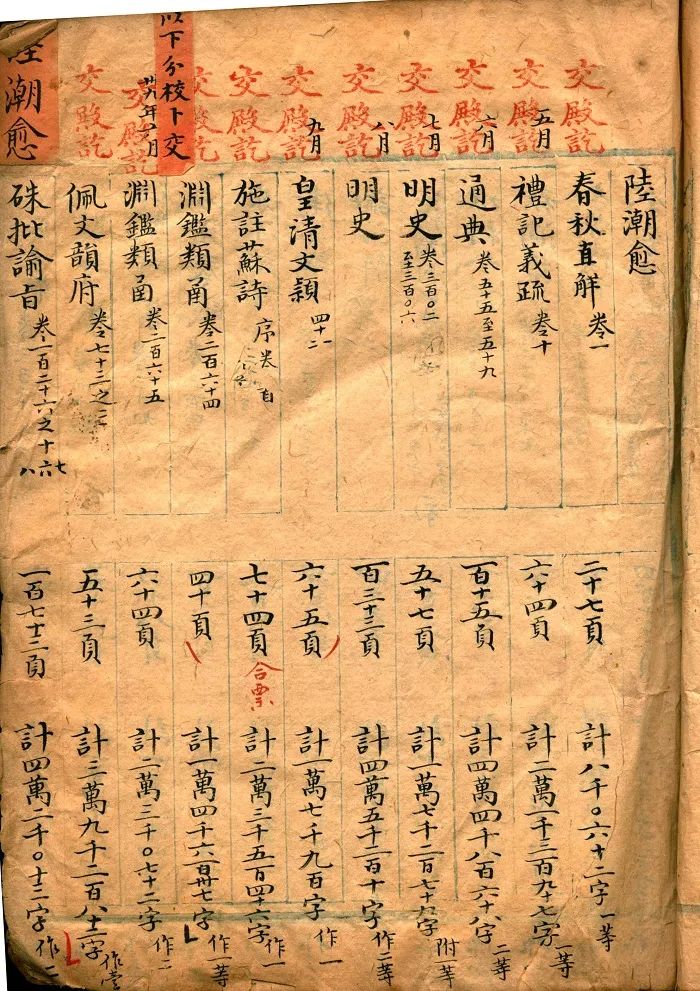 陸潮愈
五月 交殿訖 春秋直解 卷一 二十七頁 計八千〇六十二字 一等
交殿訖 禮記義疏 卷十 六十四頁 計二萬一千三百九十七字 一等
六月 交殿訖 通典 卷五十五至五十九 百十五頁 計四萬四千八百六十八字 二等
七月 交殿訖 明史 卷三百〇二至三百〇六 五十七頁 計一萬七千二百七十九字 附一等
八月 交殿訖 明史 百三十三頁 計四萬五千二百十字 作二等
九月 交殿訖 皇清文穎 四十二 六十五頁 計一萬七千九百字 作一
交殿訖 施註蘇詩 序卷 目 七十四頁 合票 計二萬三千五百四十六字 作一
交殿訖 淵鑑類函 卷二百六十四 四十頁 計一萬四千六百卅七字 作一等
以下分校卜交
交殿訖 淵鑑類函 卷二百六十五 六十四頁 計二萬三千〇七十二字 作二
交殿訖 佩文韻府 卷七十三之二 五十三頁 計三萬九千二百八十二字
陸潮愈
硃批諭旨 卷一百二十六之十六 七 八 一百七十二頁 計四萬二千〇十二字 作二